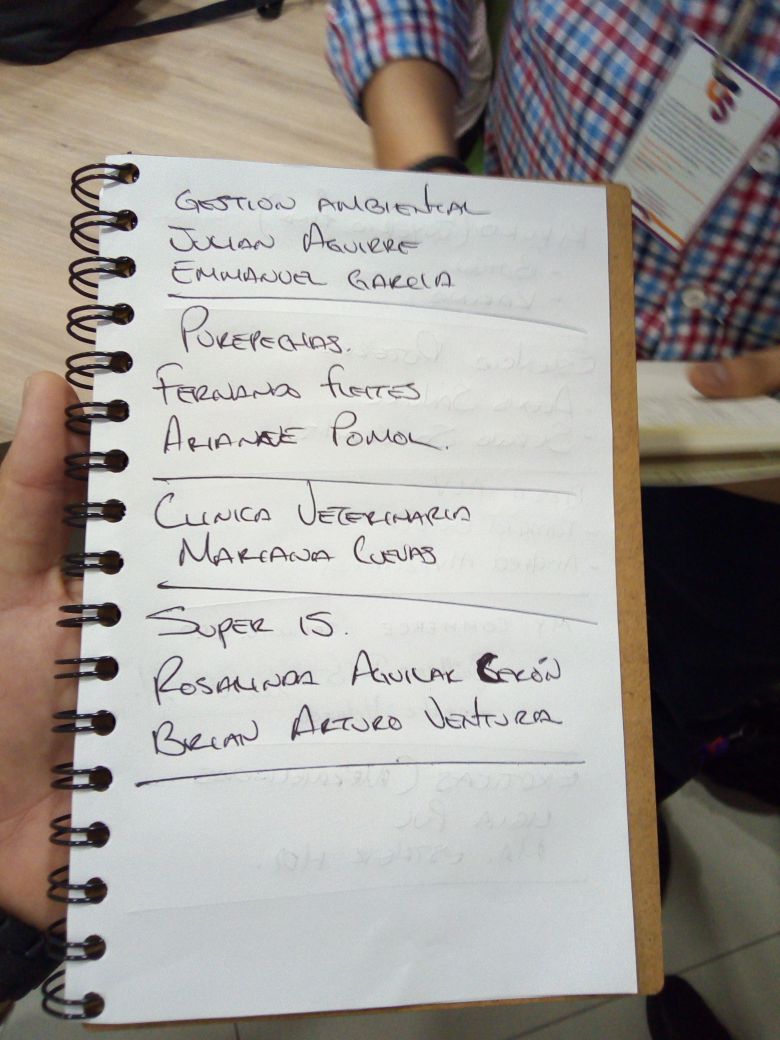 GESTION AMBIENTAL
JULIAN AGUIRRE
EMMANUEL GARCIA
PUREPECHAS.
FERNANDO FLEITES
ARIANNE POMOL.
CLINICA VETERINARIA
MARIANA CUEVAS
SUPER 15.
ROSALINDA AGUILAR CERÓN
BRIAN ARTURO VENTURA